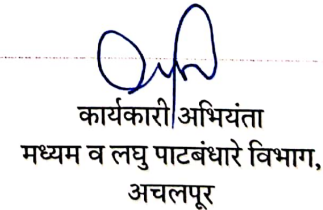 कार्यकारी अभियंता
मध्यम व लघु पाटबंधारे विभाग,
अचलपूर